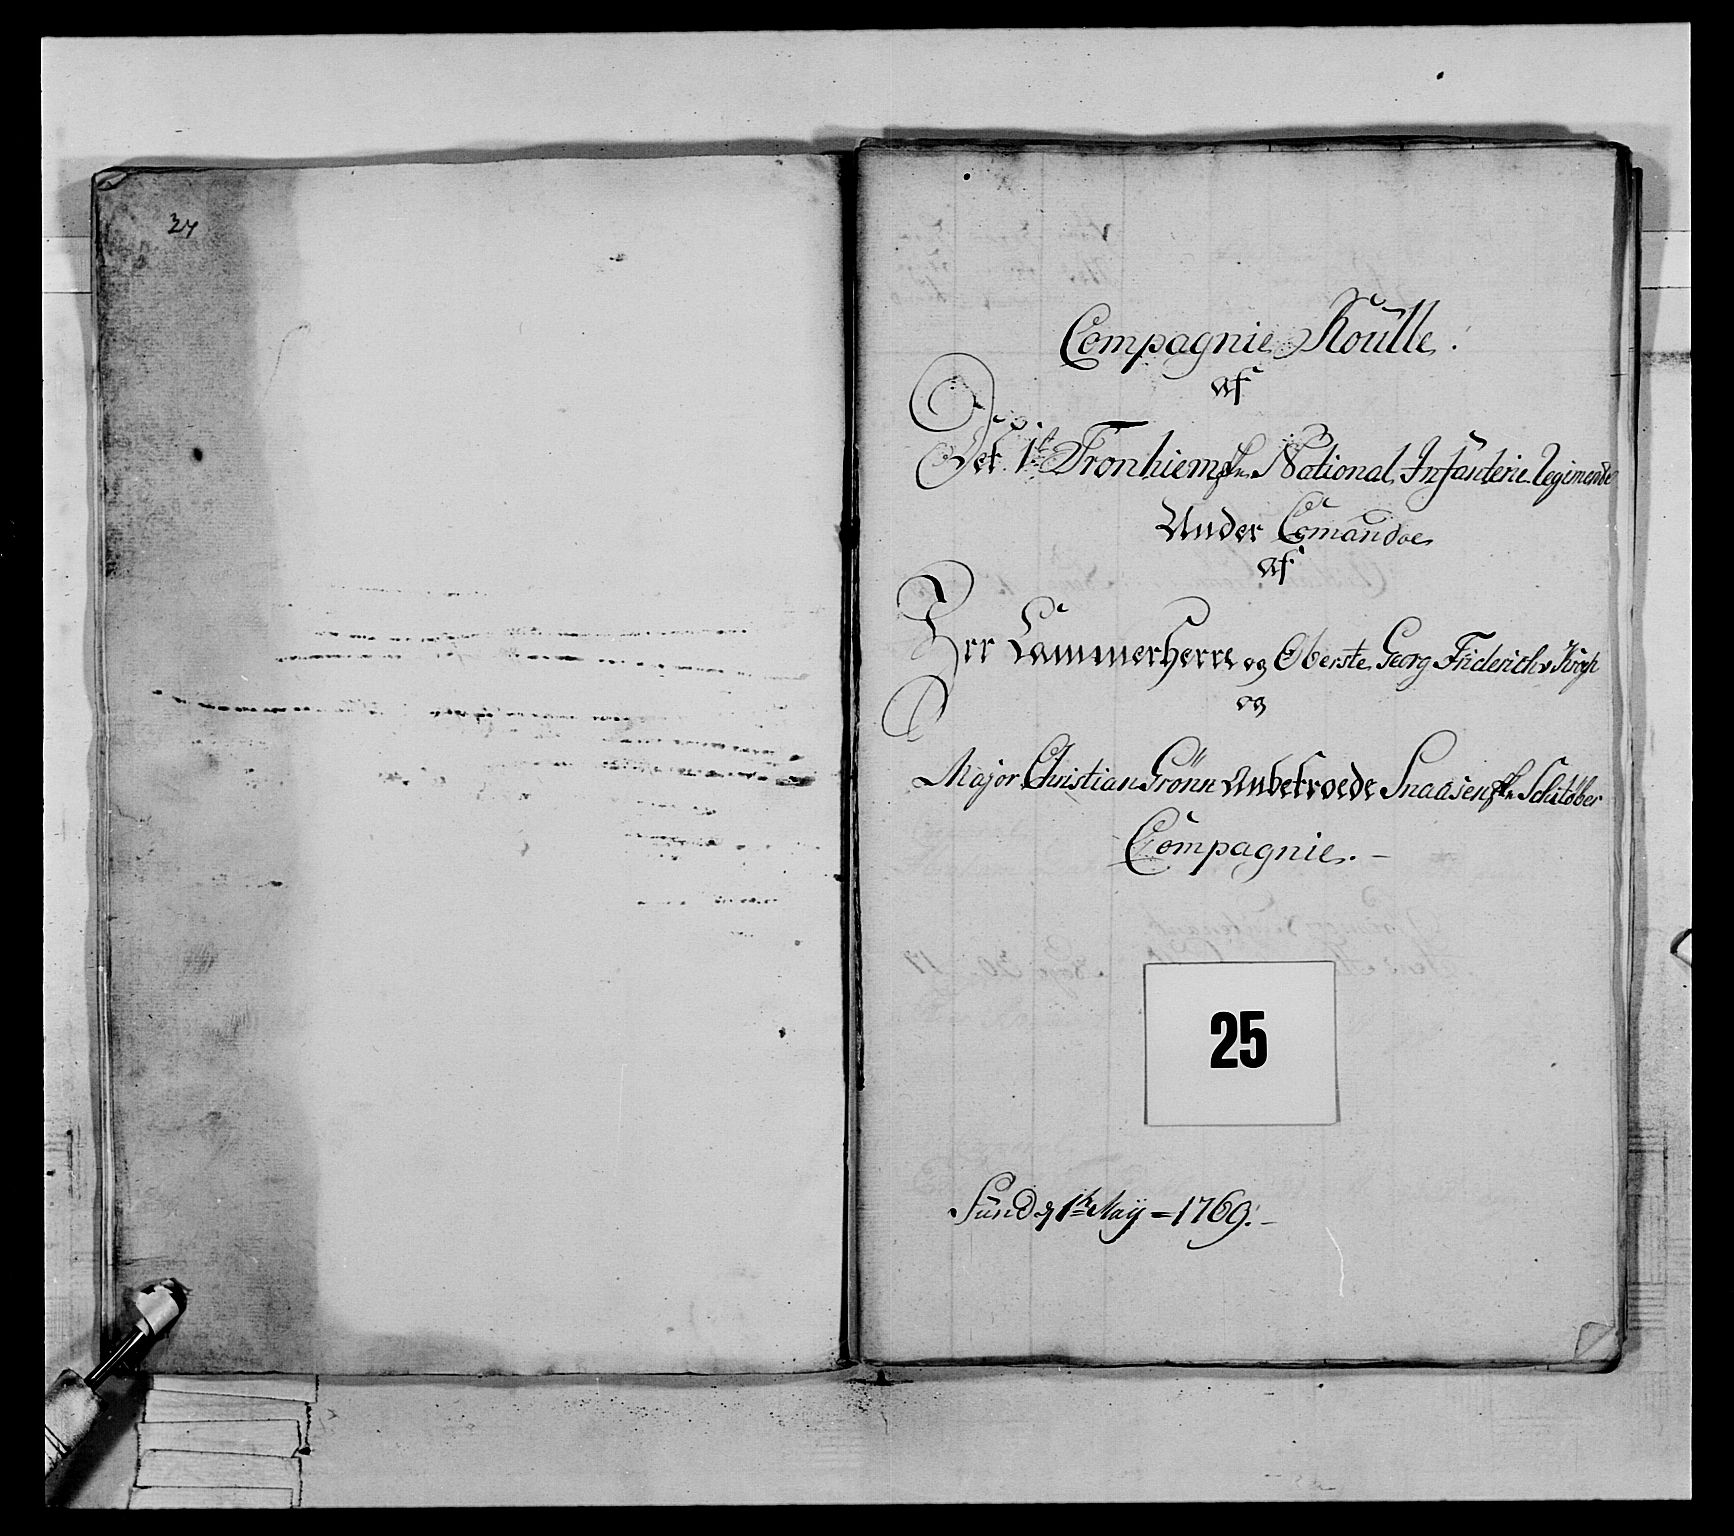 24
Compagnie Roulle.
af
Det 1te Tronhiemske National Infanterie Regimende
Under Comandoe
af
Hrr Cammerherre og Oberste Georg Friderich v Krogh
og
Major Christian Grönn Anbetroede Snaasenske Schiløber
Compagnie. -
25
Sund d 1te Maÿ = 1769. -